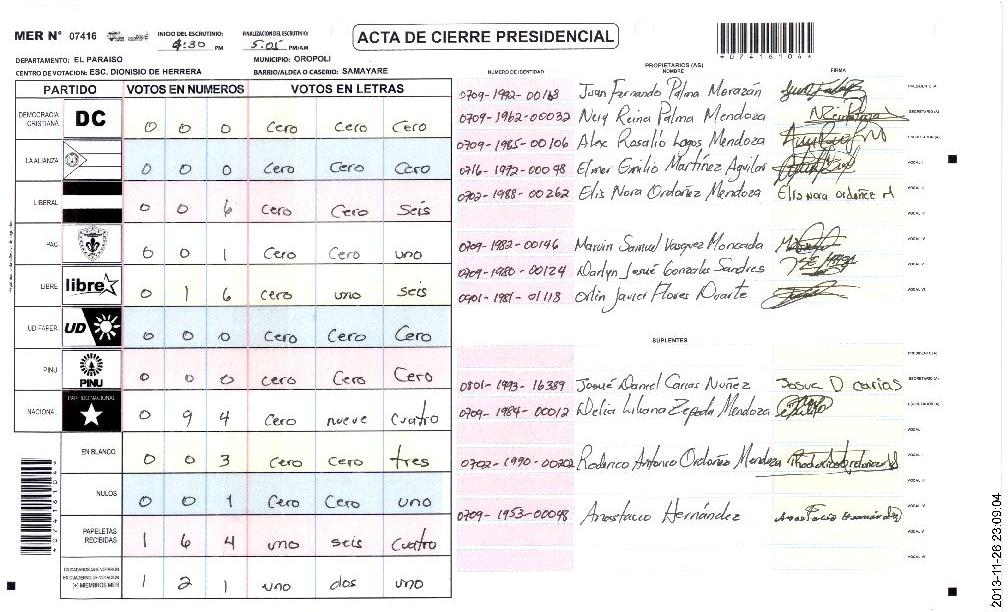 MER N° 07416 INICIO DEL ESCRUTINIO: 4:30 PM FINALIZACION DEL ESCRUTINIO: 5:05 PM/AM
ACTA DE CIERRE PRESIDENCIAL
*07416104*
DEPARTAMENTO: EL PARAISO MUNICIPIO: OROPOLI
CENTRO DE VOTACION: ESC. DIONISIO DE HERRERA BARRIO/ALDEA O CASERIO: SAMAYARE
PARTIDO VOTOS EN NUMEROS VOTOS EN LETRAS
DEMOCRACIA CRISTIANA DC 0 0 0 Cero Cero Cero
LA ALIANZA 0 0 0 Cero Cero Cero
LIBERAL 0 0 6 Cero Cero Seis
PAC 0 0 1 Cero Cero uno
LIBRE libre 0 1 6 cero uno seis
UD FAPER UD 0 0 0 Cero Cero Cero
PINU PINU 0 0 0 Cero Cero Cero
NACIONAL PARTIDO NACIONAL 0 9 4 Cero nueve cuatro
EN BLANCO 0 0 3 Cero Cero tres
NULOS 0 0 1 Cero Cero uno
PAPELETAS RECIBIDAS 1 6 4 uno seis cuatro
CIUDADANOS QUE VOTARON EN CUADERNO DE VOTACION (+) MIEMBROS MER 1 2 1 uno dos uno
*07416104*
NUMERO DE IDENTIDAD PROPIETARIOS (AS) NOMBRE FIRMA
0709-1992-00168 Juan Fernando Palma Morazán PRESIDENTE (A)
0709-1962-00032 Nery Reina Palma Mendoza SECRETARIO (A)
0709-1985-00106 Alex Rosalio Lagos Mendoza ESCRUTADOR (A)
0716-1972-00098 Elmer Emilio Martínez Aguilar VOCAL I
0702-1988-00262 Elis Nora Ordoñez Mendoza Elis Nora ordoñez M VOCAL II
VOCAL III
0709-1982-00146 Marvin Samuel Vasquez Moncada VOCAL IV
0709-1980-00124 Darlyn Josué Gonzales Sandres VOCAL V
0901-1981-01118 Orlin Javier Flores Duarte VOCAL VI
SUPLENTES
PRESIDENTE (A)
0801-1993-16389 Josué Daniel Carias Nuñez Josue D carias SECRETARIO (A)
0709-1984-00012 Delia Liliana Zepeda Mendoza ESCRUTADOR (A)
VOCAL
0702-1990-00202 Roderico Antonio Ordoñez Mendoza VOCAL
VOCAL III
0709-1953-00098 Anastacio Hernández Anastacio Hernández VOCAL
VOCAL V
VOCAL VI
2013-11-26 23:09:04